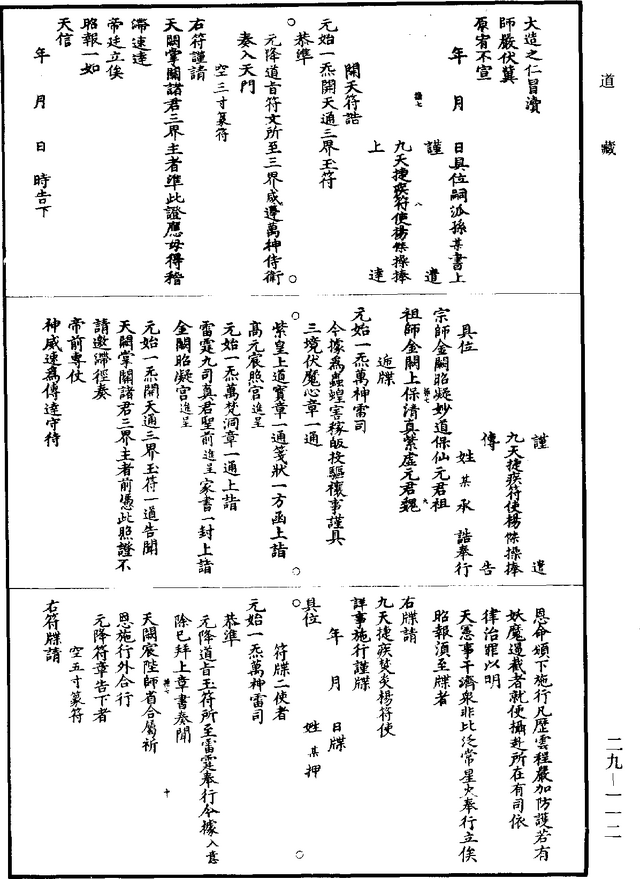 道藏
大造之仁冒瀆
師嚴伏冀
原宥不宣
年 月 日具位嗣派孫某書上
謹遣
九天捷疾符使楊傑操捧
上達
開天符誥
元始一炁開天通三界玉符
恭準
元降道旨符文所至三界咸遵萬神侍衛
奏入天門
空三寸篆符
右符謹請
天閽掌闕諸君三界主者準此證應毋得稽
滯速達
帝廷立俟
昭報一如
天信
年 月 日 時告下
謹遣
九天捷疾符使楊傑操捧
傳告
具位 姓某承誥奉行
宗師金闕昭凝妙道保仙元君祖
祖師金闕上保清真紫虛元君魏
近牒
元始一炁萬神雷司
今據為蟲蝗害稼皈投驅禳事謹具
三境伏魔心章一通
紫皇上道寶章一通箋狀一方函上詣
高元宸照宮進呈
元始一炁萬梵洞章一通上詣
雷霆九司真君聖前進呈家書一封上詣
金闕昭凝宮進呈
元始一炁開天通三界玉符一道告聞
天閽掌闕諸君三界主者前憑此照證不
請邀滯徑奏
帝前專仗
神威速為傳達守待
恩命頒下施行凡歷雲程嚴加防護若有
妖魔遏截者就便攝赴所在有司依
律治罪以明
天憲事干濟衆非比泛常星火奉行立俟
昭報須至牒者
右牒請
九天捷疾焚炎楊符使
詳事施行謹牒
年 月 日牒
具位 姓某押
符牒二使者
元始一炁萬神雷司
恭準
元降道旨玉符所至雷霆奉行今據入意
除已拜上章書奏聞
天闕宸陛師省合屬祈
恩施行外合行
元降符章告下者
空五寸篆符
右符牒請
二九—一一二